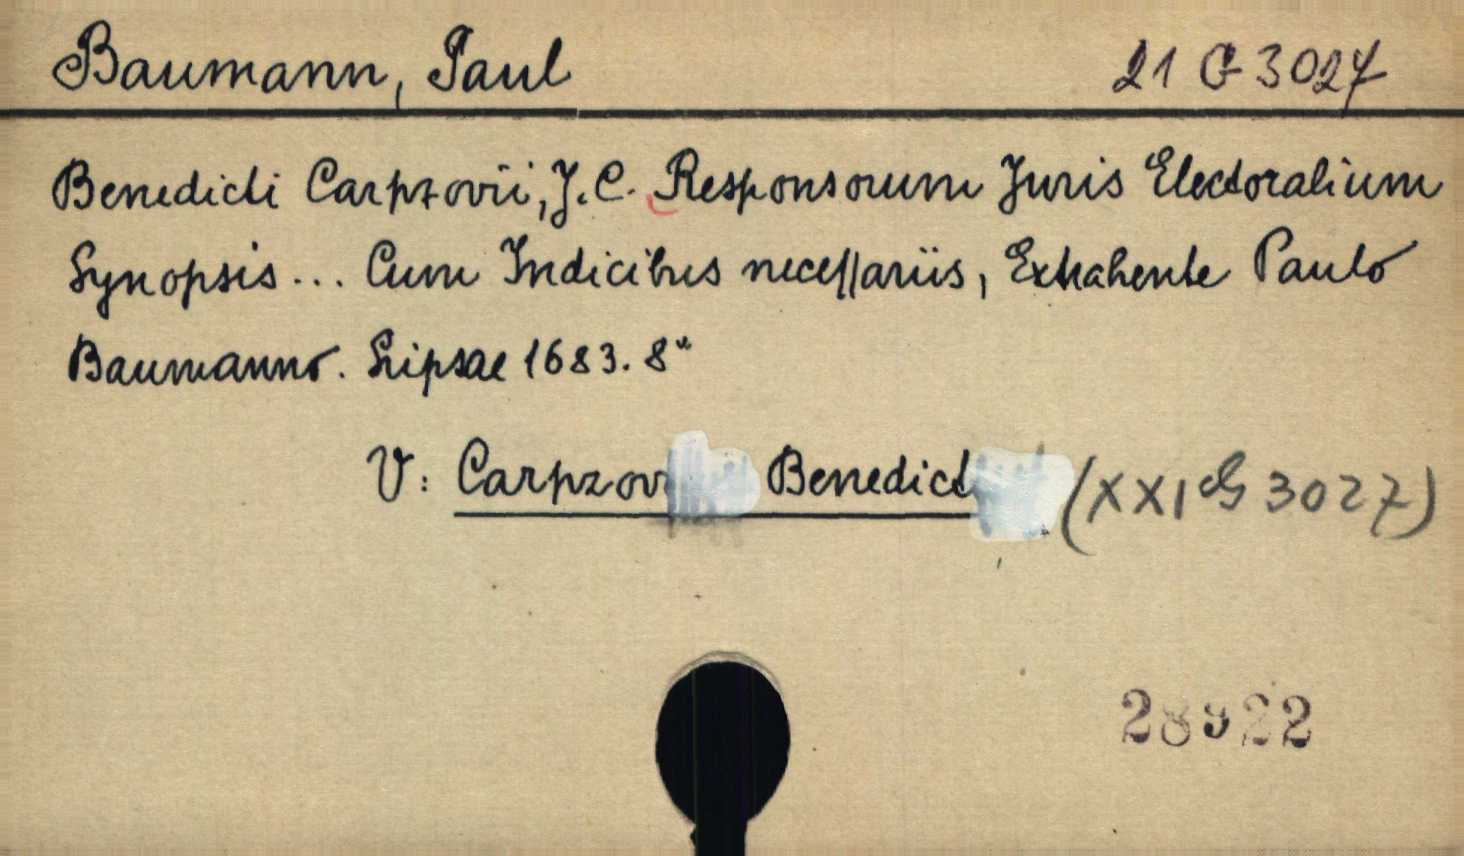 Baumann, Paul 21 G 3027
Benedicti Carpzovii, J. C. Responsorum Juris Electoralium
Synopsis ... Cum Indicibus necessariis, Extrahente Paulo
Baumanno. Lipsae 1683. 8°
V: Carpzov Benedict (XXI G 3027)
28922